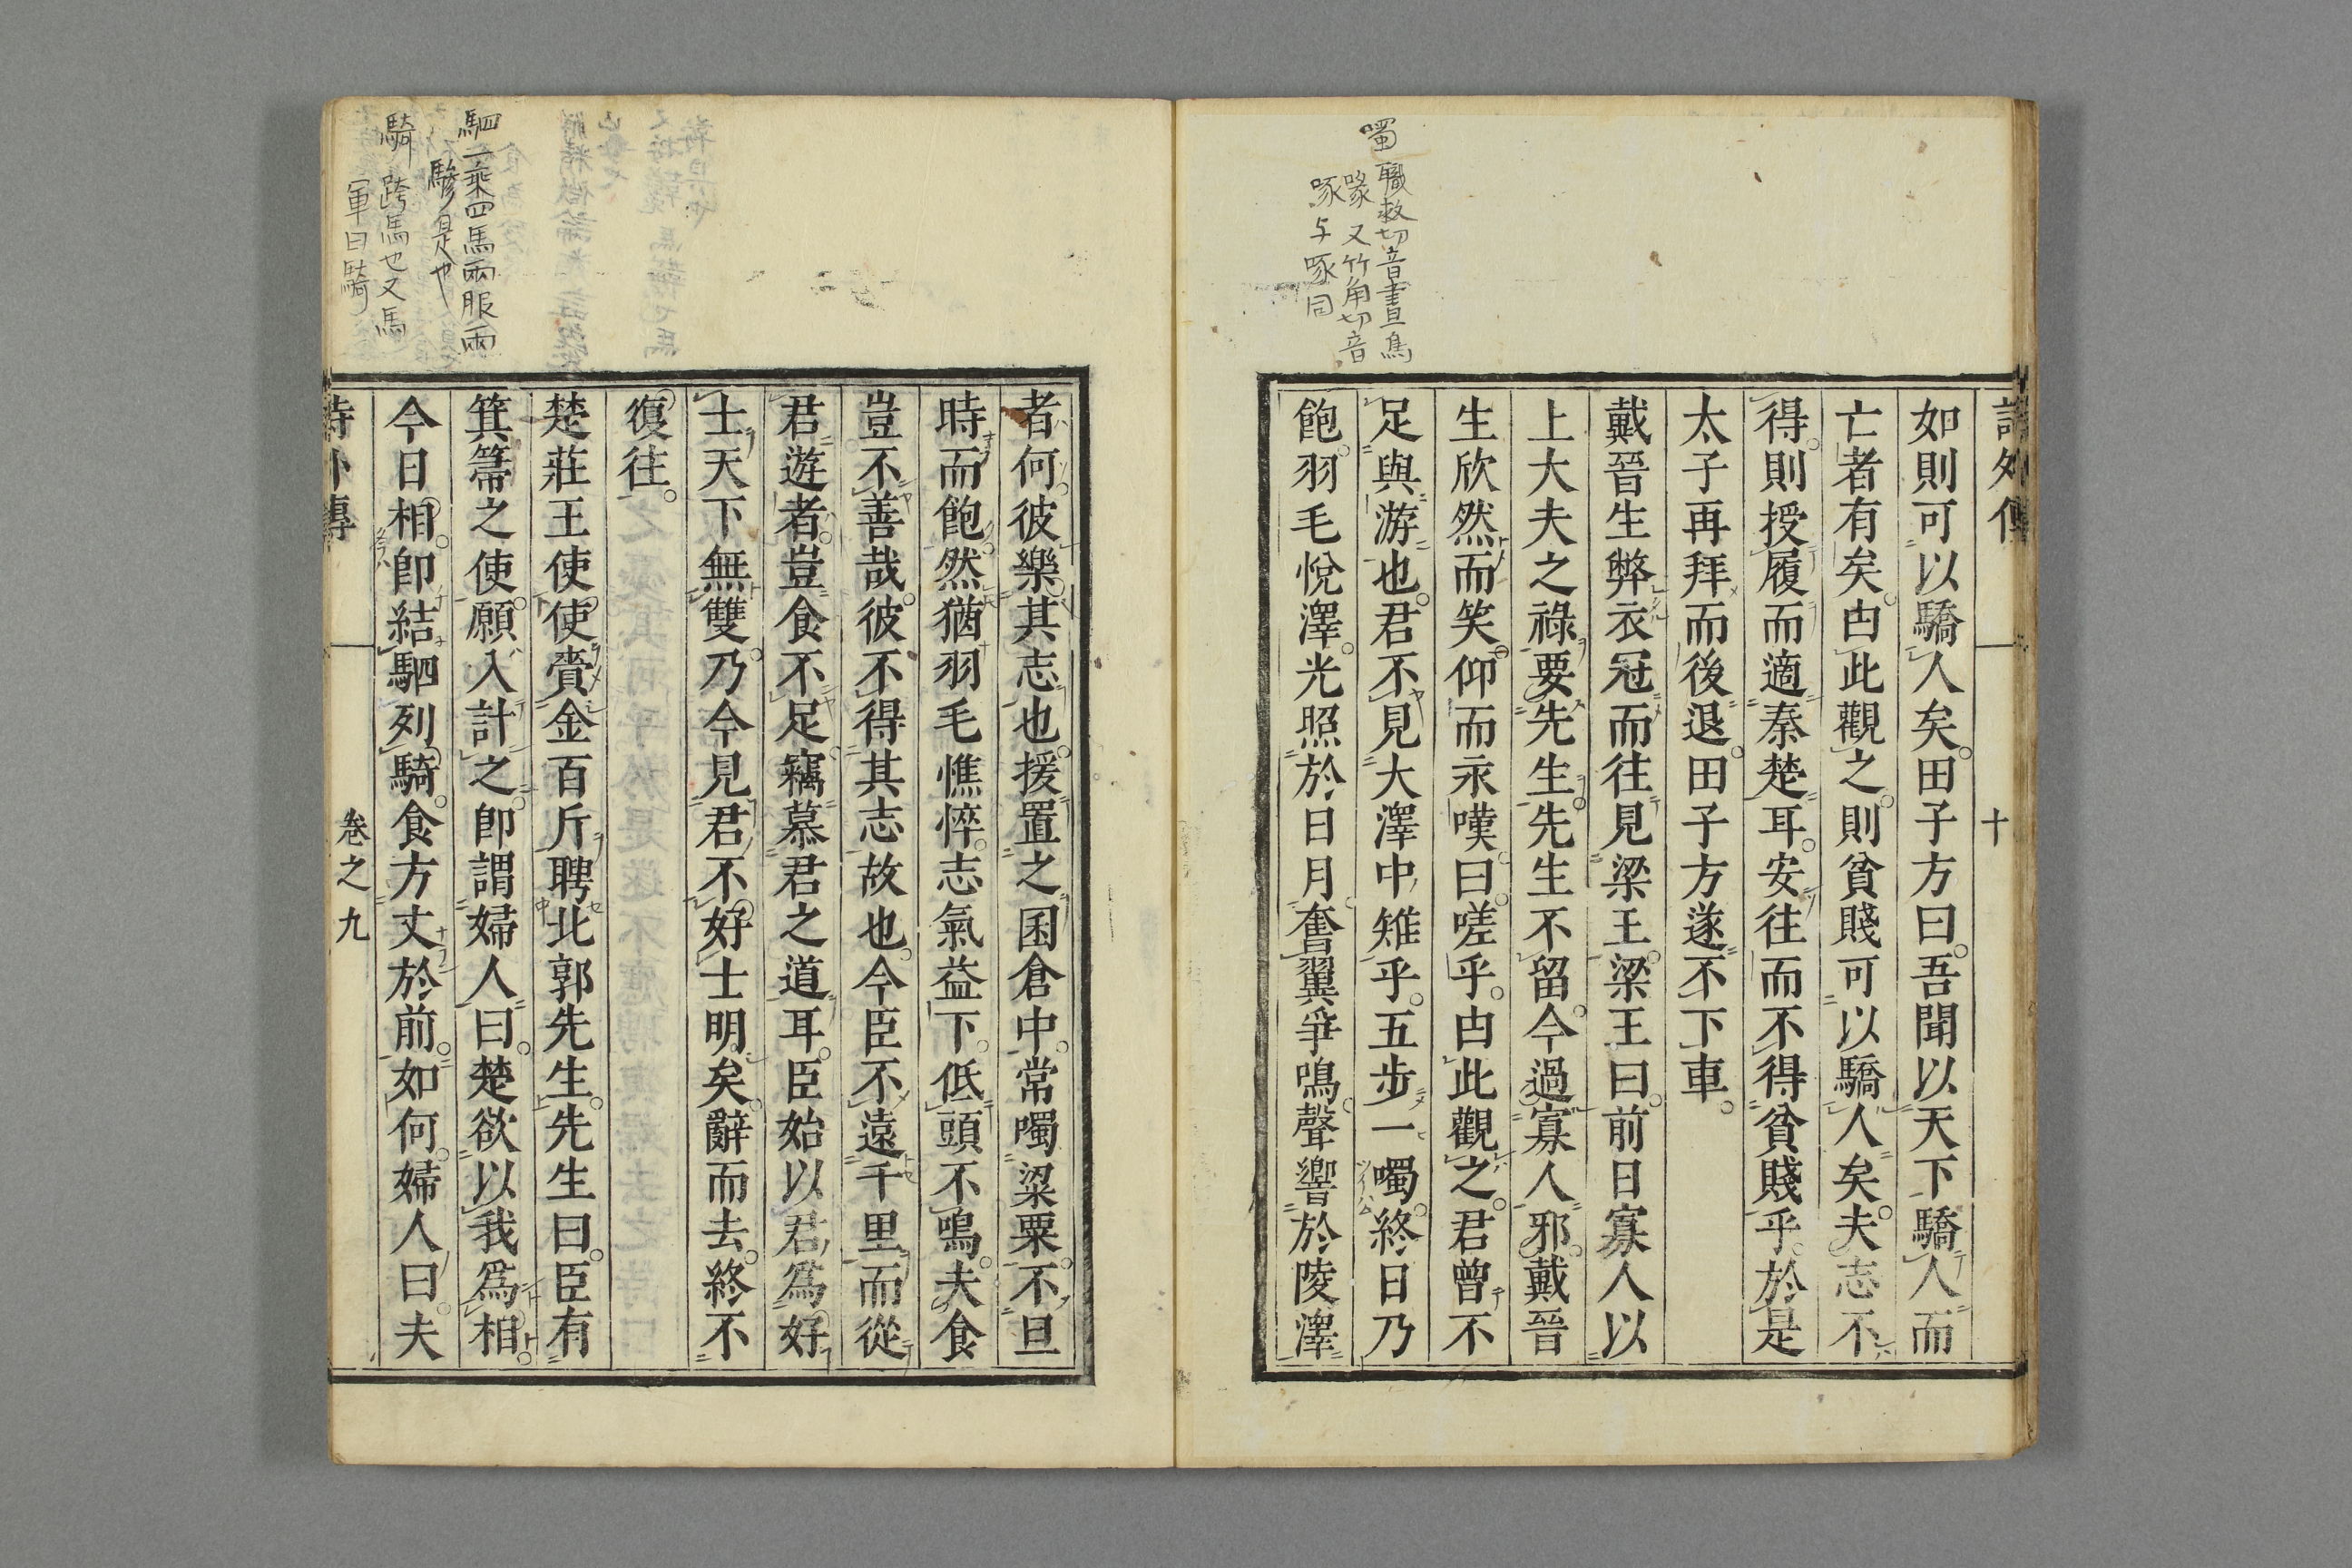 噣 職救切音晝鳥
喙又竹角切音
啄与啄同
詩外傳 十
如則可以驕人矣田子方曰吾聞以天下驕人而
亡者有矣由此觀之則貧賤可以驕人矣夫志不
得則授履而適秦楚耳安往而不得貧賤乎於是
太子再拜而後退田子方遂不下車
戴晉生弊衣冠而往見梁王梁王曰前日寡人以
上大夫之祿要先生先生不留今過寡人邪戴晉
生欣然而笑仰而永嘆曰嗟乎由此觀之君曾不
足與游也君不見大澤中雉乎五步一噣終日乃
飽羽毛悅澤光照於日月奮翼爭鳴聲響於陵澤
者何彼樂其志也援置之囷倉中常噣粱粟不旦
時而飽然猶羽毛憔悴志氣益下低頭不鳴夫食
豈不善哉彼不得其志故也今臣不遠千里而從
君遊者豈食不足竊慕君之道耳臣始以君爲好
士天下無雙乃今見君不好士明矣辭而去終不
復往
楚莊王使使賫金百斤聘北郭先生先生曰臣有
箕箒之使願入計之卽謂婦人曰楚欲以我爲相
今日相卽結駟列騎食方丈於前如何婦人曰夫
詩外傳 卷之九
駟一乘四馬兩服兩
驂是也
騎 跨馬也又馬
軍曰騎